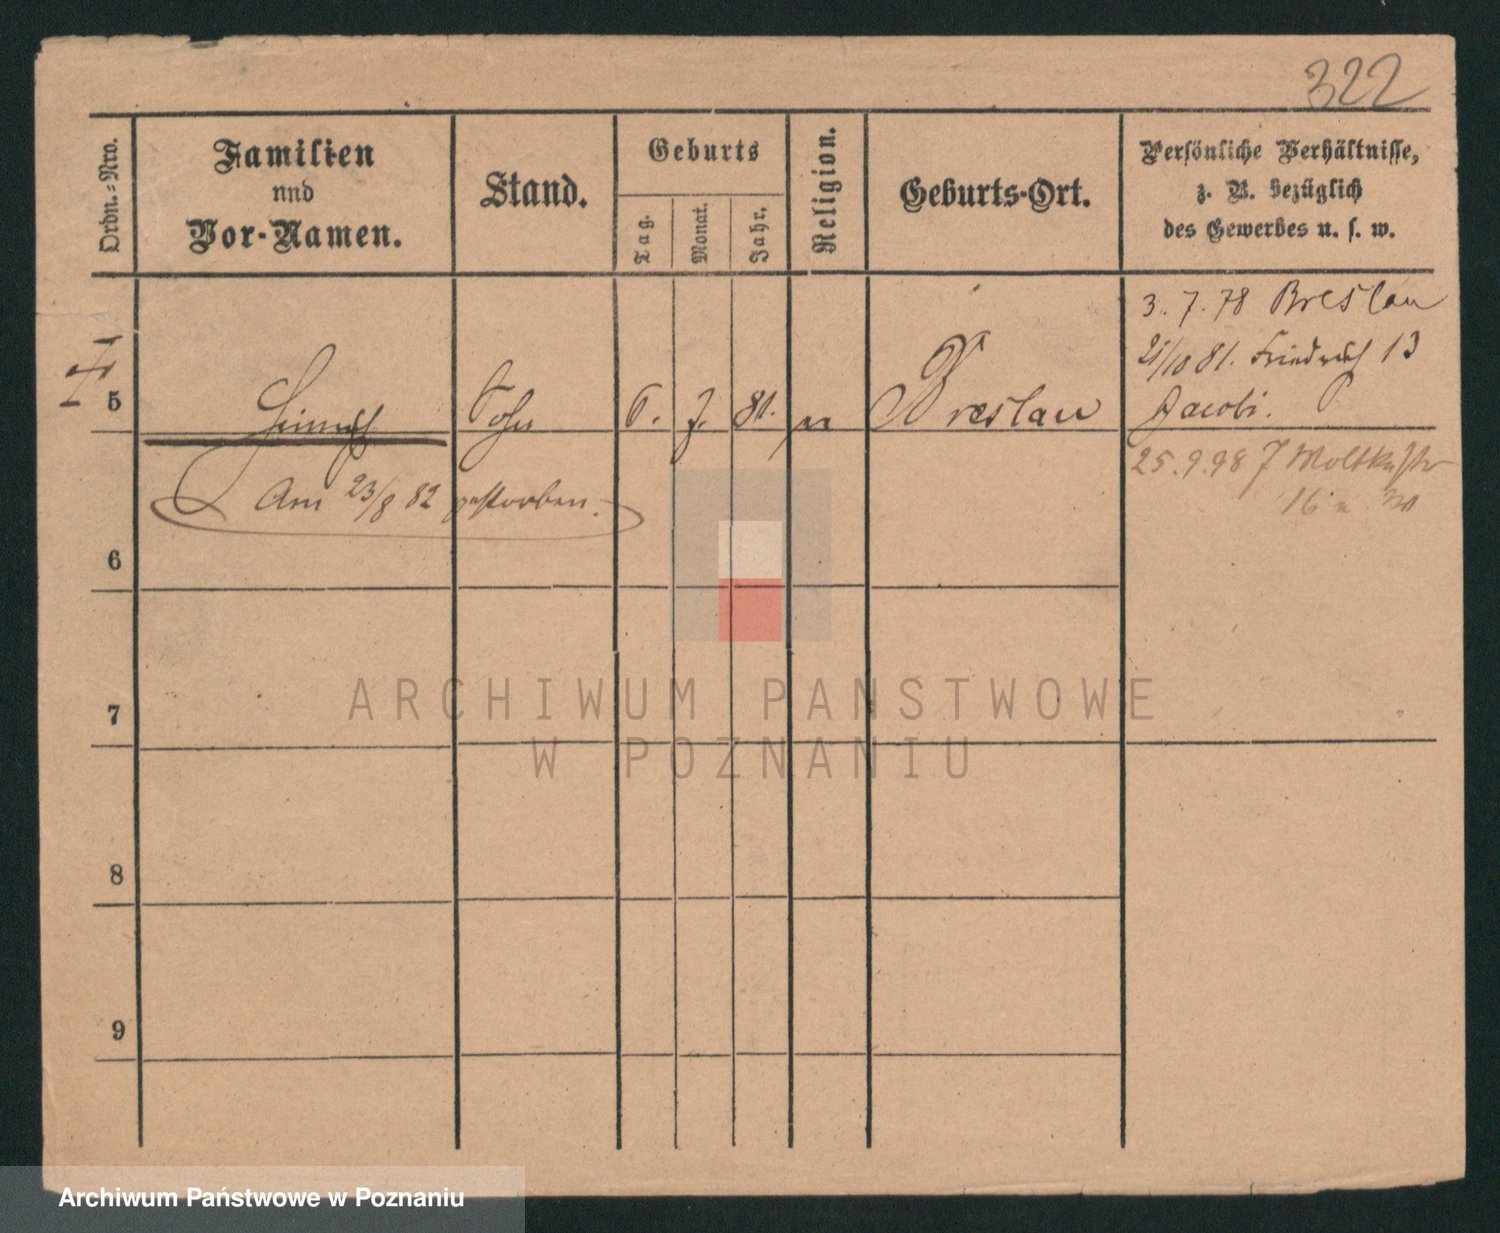 322
Ordn.-Nro.
Familien
und
Vor-Namen.
Stand.
Geburts
Tag.
Monat.
Jahr.
Religion.
Geburts-Ort.
Persönliche Verhältnisse,
z. B. bezüglich
des Gewerbes u. s. w.
3. 7. 78 Breslau
21/10 81. Friedrich 13
Jacobi.
5 Heinrich Sohn 6. 7. 81. Breslau
25. 9. 98 Moltkestr
16
Am 23/8 82 gestorben.
6
7
8
9
ARCHIWUM PAŃSTWOWE
W POZNANIU
Archiwum Państwowe w Poznaniu